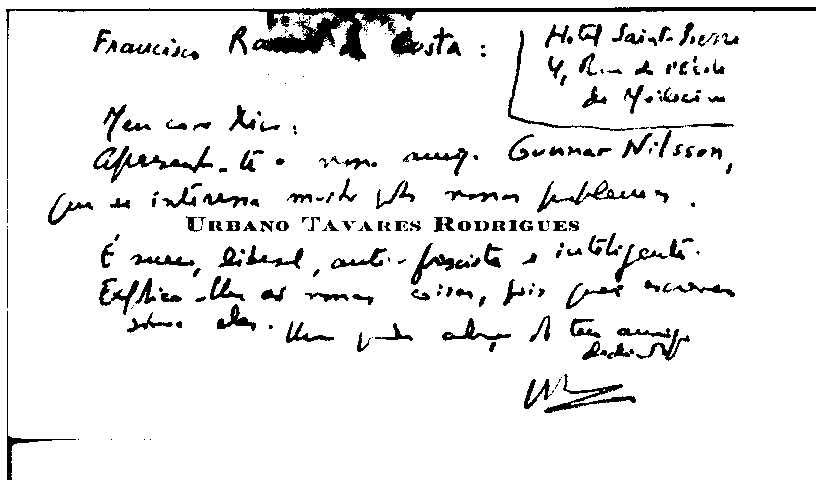 Francisco Ramos da Costa :
Hotel Saint-Pierre
4, Rue de l'École
de Médecine
Meu caro Xico:
Apresento-te o nosso amigo Gunnar Nilsson,
que se interessa muito pelos nossos problemas.
URBANO TAVARES RODRIGUES
É sueco, liberal, anti-fascista e inteligente.
Explica-lhe as nossas coisas, pois quer escrever
sobre elas. Um grande abraço do teu amigo
dedicado